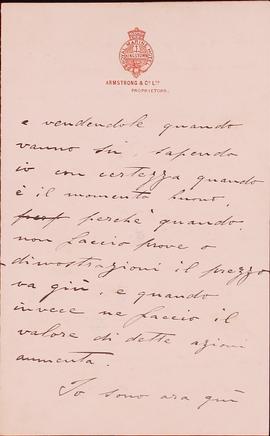 ROYAL MARINE HOTEL
KINGSTOWN
ARMSTRONG & Co Ltd
PROPRIETORS.
e vendendole quando
vanno su, sapendo
io con certezza quando
è il momento buono,
perchè quando
non faccio prove o
dimostrazioni il prezzo
va giù, e quando
invece ne faccio il
valore di dette azioni
aumenta.
Io sono ora qui